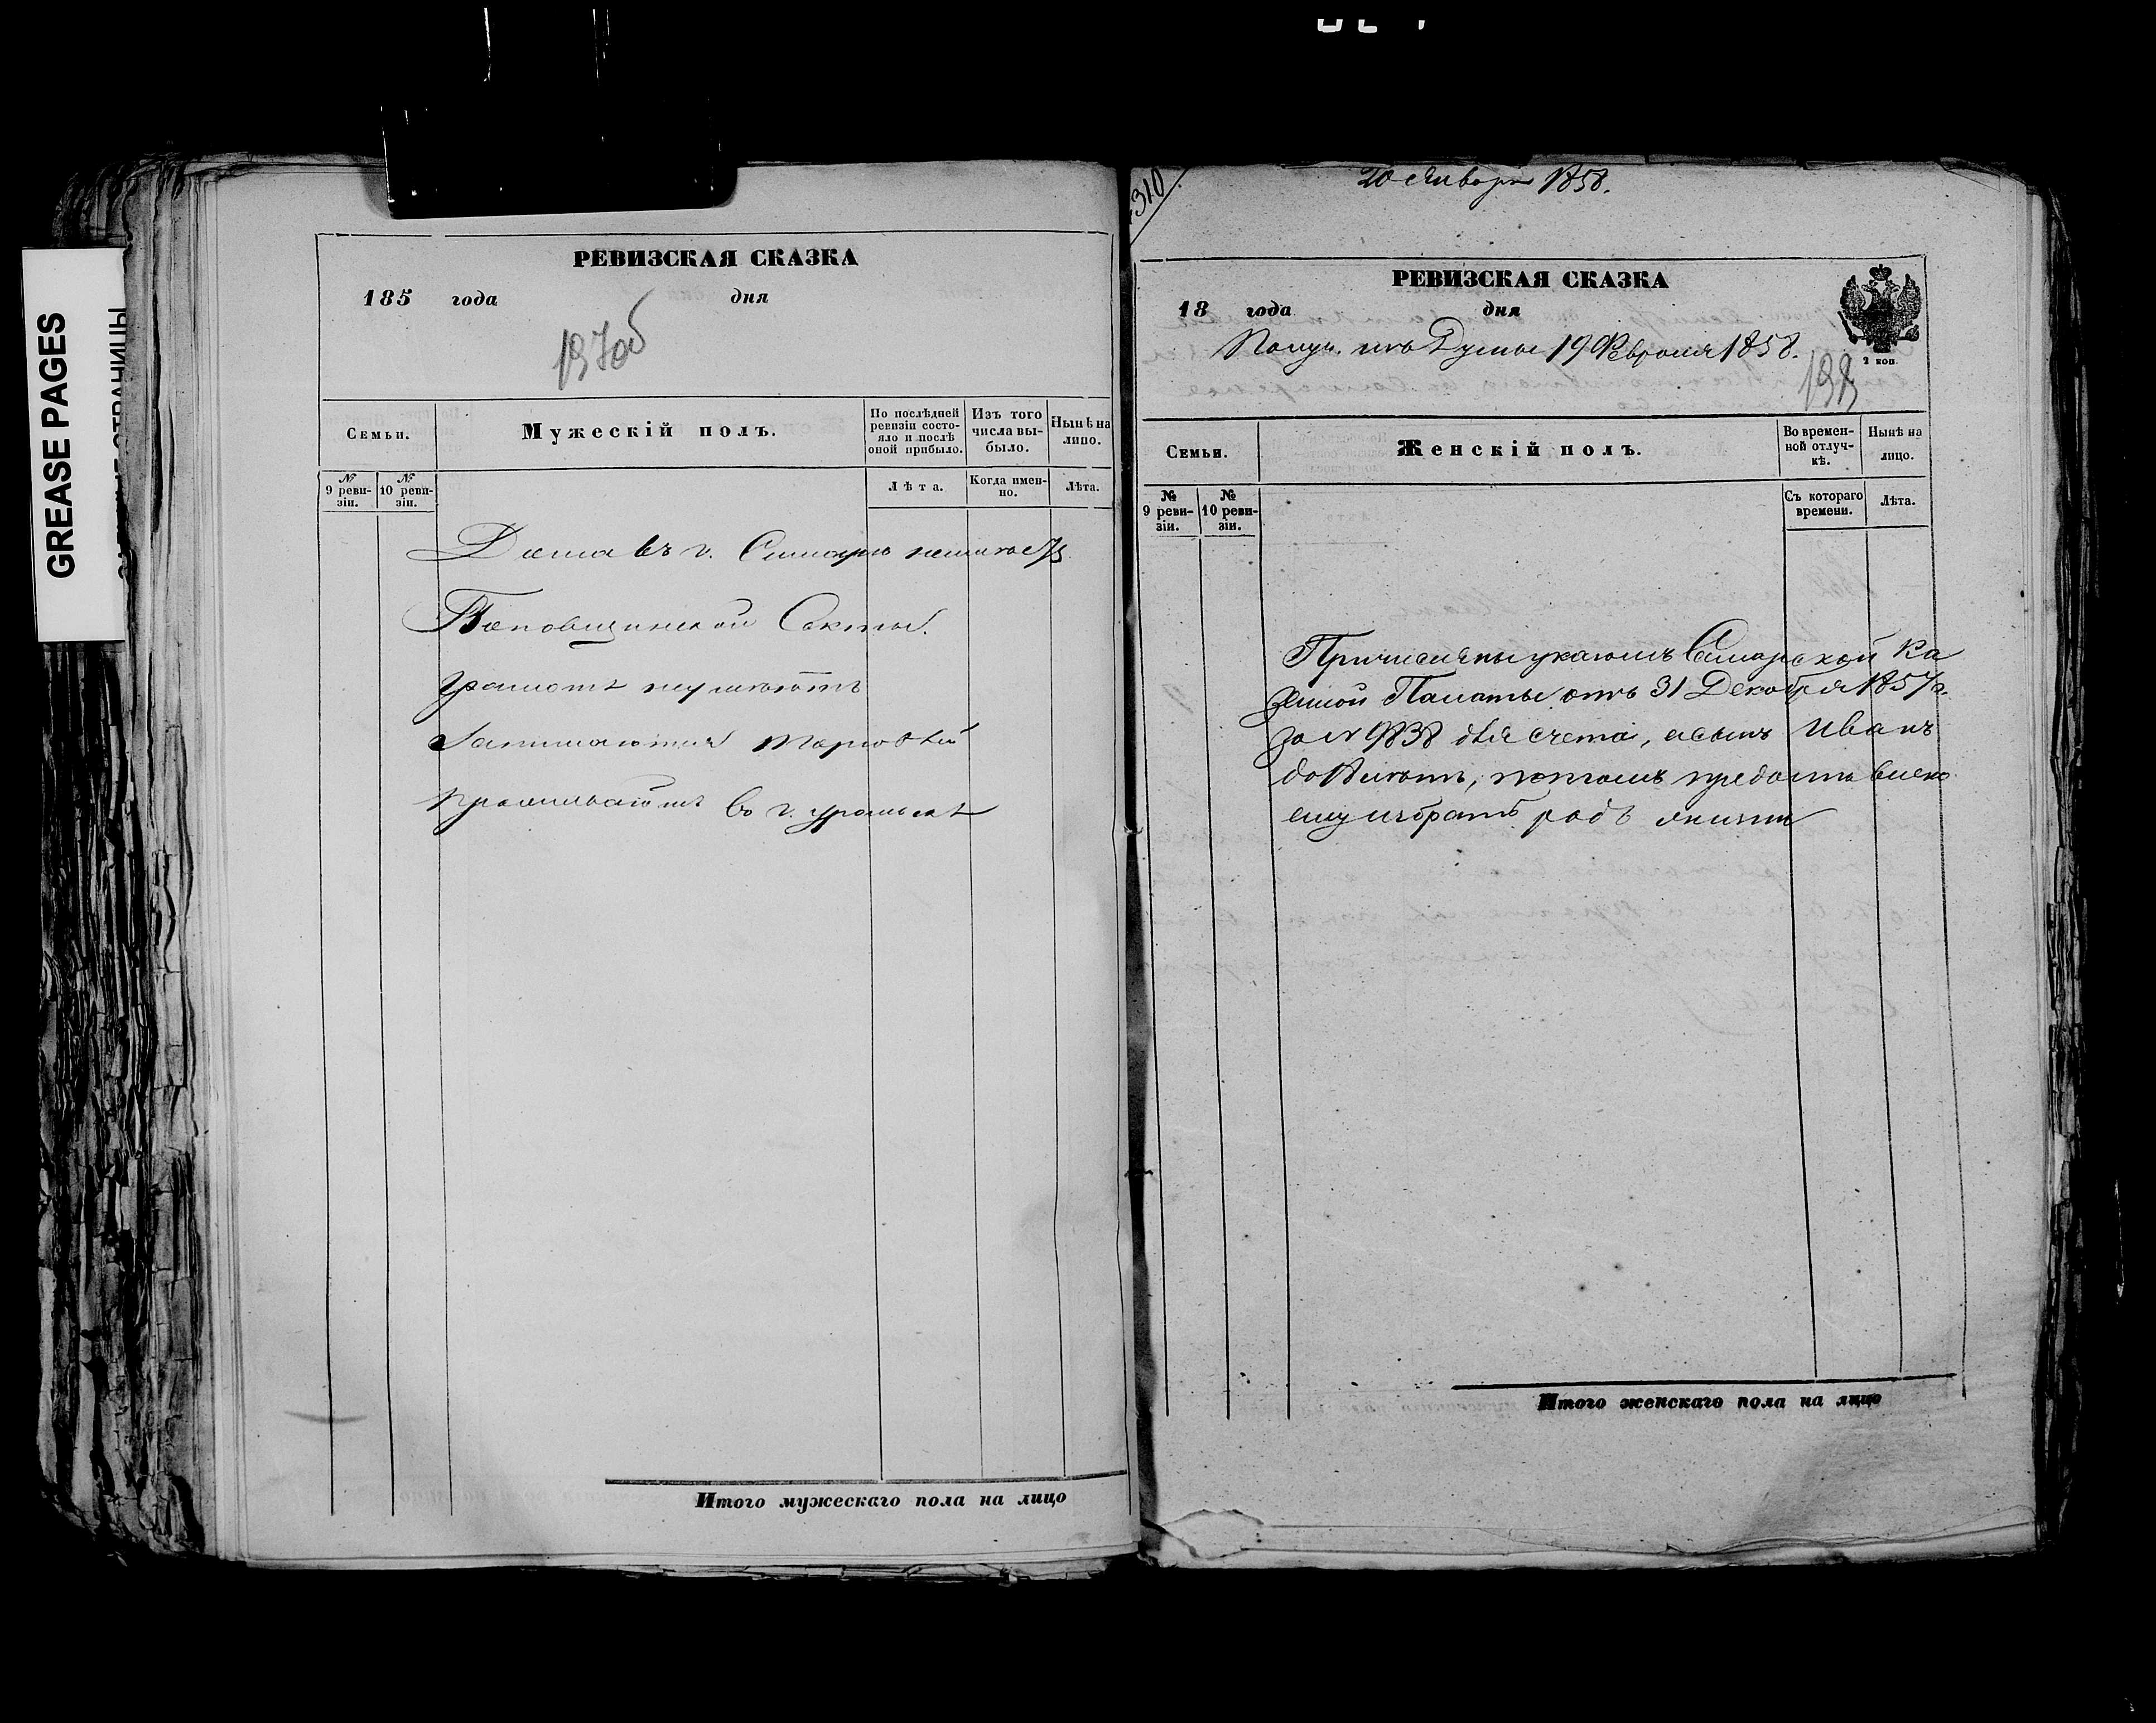 GREASE PAGES
РЕВИЗСКАЯ СКАЗКА
185 года дня
197об
Семьи.
Мужескій полъ.
По послѣдней ревизіи состояло и послѣ оной прибыло.
Изъ того числа выбыло.
Нынѣ на лицо.
№ 9 ревизіи.
№ 10 ревизіи.
Лѣта.
Когда именно.
Лѣта.
Дома въ г. Самарѣ неимѣетъ
Поповщинской Секты.
грамотѣ неумѣютъ
Занимаются торговлей
проживаютъ въ г. уральскѣ
Итого мужескаго пола на лицо
310
20 Января 1858.
РЕВИЗСКАЯ СКАЗКА
18 года дня
2 коп.
Получ. изъ Думы 19 Февраля 1858.
198
Семьи.
Женскій полъ.
Во временной отлучкѣ.
Нынѣ на лицо.
№ 9 ревизіи.
№ 10 ревизіи.
Съ котораго времени.
Лѣта.
Причислены указомъ Самарской Ка
зенной Палаты отъ 31 Декабря 1857 г.
за № 9838 для счета, а сынъ Иванъ
до лѣтъ, потомъ предоставлено
ему избрать родъ жизни
Итого женскаго пола на лицо